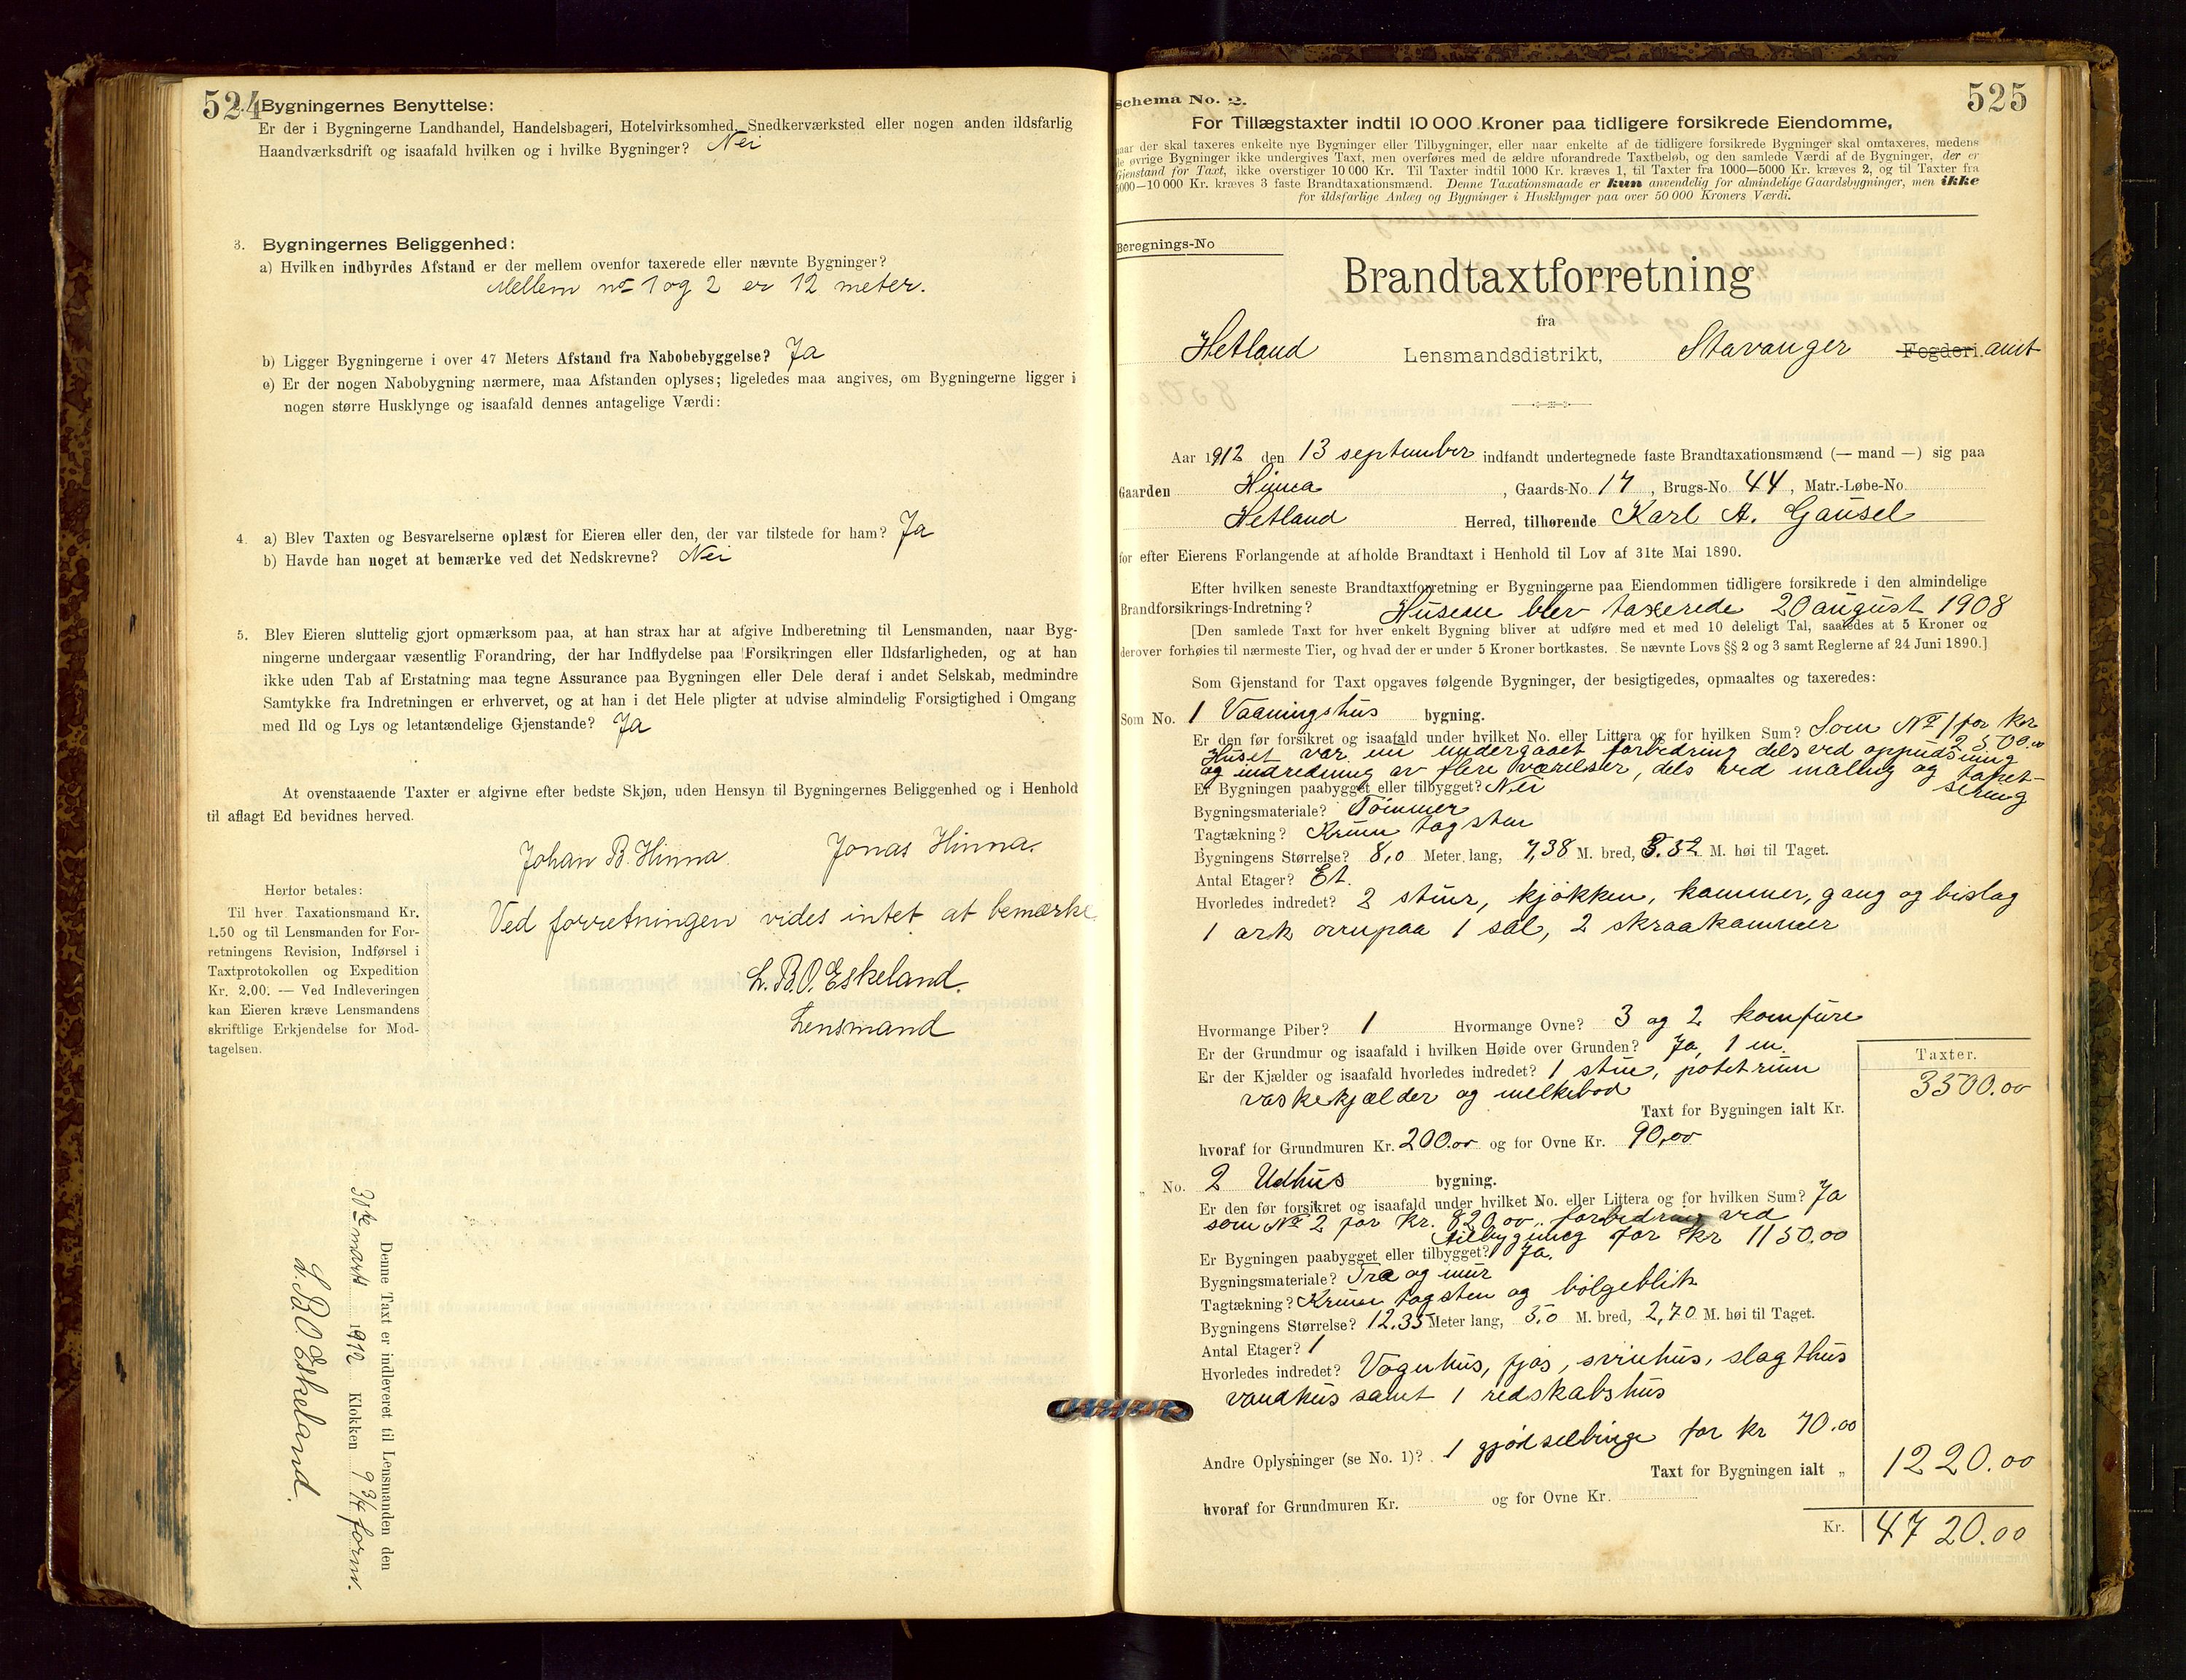 524
2. Bygningernes Benyttelse:
Er der i Bygningerne Landhandel, Handelsbageri, Hotelvirksomhed, Snedkerværksted eller nogen anden ildsfarlig
Haandværksdrift og isaafald hvilken og i hvilke Bygninger? Nei
3. Bygningernes Beliggenhed:
a) Hvilken indbyrdes Afstand er der mellem ovenfor taxerede eller nævnte Bygninger?
Mellem no 1 og 2 er 12 meter.
b) Ligger Bygningerne i over 47 Meters Afstand fra Nabobebyggelse? Ja
c) Er der nogen Nabobygning nærmere, maa Afstanden oplyses; ligeledes maa angives, om Bygningerne ligger i
nogen større Husklynge og isaafald dennes antagelige Værdi:
4. a) Blev Taxten og Besvarelserne oplæst for Eieren eller den, der var tilstede for ham? Ja
b) Havde han noget at bemærke ved det Nedskrevne? Nei
5. Blev Eieren sluttelig gjort opmærksom paa, at han strax har at afgive Indberetning til Lensmanden, naar Byg-
ningerne undergaar væsentlig Forandring, der har Indflydelse paa Forsikringen eller Ildsfarligheden, og at han
ikke uden Tab af Erstatning maa tegne Assurance paa Bygningen eller Dele deraf i andet Selskab, medmindre
Samtykke fra Indretningen er erhvervet, og at han i det Hele pligter at udvise almindelig Forsigtighed i Omgang
med Ild og Lys og letantændelige Gjenstande? Ja
At ovenstaaende Taxter er afgivne efter bedste Skjøn, uden Hensyn til Bygningernes Beliggenhed og i Henhold
til aflagt Ed bevidnes herved.
Johan B. Hinna. Jonas Hinna.
Herfor betales:
Til hver Taxationsmand Kr.
1.50 og til Lensmanden for For-
retningens Revision, Indførsel i
Taxtprotokollen og Expedition
Kr. 2.00. — Ved Indleveringen
kan Eieren kræve Lensmandens
skriftlige Erkjendelse for Mod-
tagelsen.
Ved forretningen vides intet at bemærke.
L. B. O. Eskeland.
Lensmand
Denne Taxt er indleveret til Lensmanden den
31te marts 1912 Klokken 9 3/4 form.
L. B. O. Eskeland.
525
Schema No. 2.
For Tillægstaxter indtil 10 000 Kroner paa tidligere forsikrede Eiendomme,
naar der skal taxeres enkelte nye Bygninger eller Tilbygninger, eller naar enkelte af de tidligere forsikrede Bygninger skal omtaxeres, medens
de øvrige Bygninger ikke undergives Taxt, men overføres med de ældre uforandrede Taxtbeløb, og den samlede Værdi af de Bygninger, der er
Gjenstand for Taxt, ikke overstiger 10 000 Kr. Til Taxter indtil 1000 Kr. kræves 1, til Taxter fra 1000—5000 Kr. kræves 2, og til Taxter fra
5000—10 000 Kr. kræves 3 faste Brandtaxationsmænd. Denne Taxationsmaade er kun anvendelig for almindelige Gaardsbygninger, men ikke
for ildsfarlige Anlæg og Bygninger i Husklynger paa over 50 000 Kroners Værdi.
Beregnings-No
Brandtaxtforretning
fra
Hetland Lensmandsdistrikt, Stavanger Fogderi. amt
Aar 1912 den 13 september indfandt undertegnede faste Brandtaxationsmænd (— mand —) sig paa
Gaarden Hinna, Gaards-No. 17, Brugs-No. 44, Matr.-Løbe-No.
Hetland Herred, tilhørende Karl A. Gausel
for efter Eierens Forlangende at afholde Brandtaxt i Henhold til Lov af 31te Mai 1890.
Efter hvilken seneste Brandtaxtforretning er Bygningerne paa Eiendommen tidligere forsikrede i den almindelige
Brandforsikrings-Indretning? Husene blev taxerede 20 august 1908
[Den samlede Taxt for hver enkelt Bygning bliver at udføre med et med 10 deleligt Tal, saaledes at 5 Kroner og
derover forhøies til nærmeste Tier, og hvad der er under 5 Kroner bortkastes. Se nævnte Lovs §§ 2 og 3 samt Reglerne af 24 Juni 1890.]
Som Gjenstand for Taxt opgaves følgende Bygninger, der besigtigedes, opmaaltes og taxeredes:
Som No. 1 Vaaningshus bygning.
Er den før forsikret og isaafald under hvilket No. eller Littera og for hvilken Sum? Som No 1 for Kr
2500.00
Huset var nu undergaaet forbedring dels ved oppudsning
og indredning av flere værelser, dels ved maling og tapet-
sering
Er Bygningen paabygget eller tilbygget? Nei
Bygningsmateriale? Tømmer
Tagtækning? Krum tagsten
Bygningens Størrelse? 8,0 Meter lang, 7,38 M. bred, 3.32 M. høi til Taget.
Antal Etager? Et.
Hvorledes indredet? 2 stuer, kjøkken, kammer, gang og bislag
1 ark ovenpaa 1 sal, 2 skraakammer
Hvormange Piber? 1 Hvormange Ovne? 3 og 2 komfure
Er der Grundmur og isaafald i hvilken Høide over Grunden? Ja, 1 m.
Er der Kjælder og isaafald hvorledes indredet? 1 stue, potetrum
vaskekjælder og melkebod
Taxter.
Taxt for Bygningen ialt Kr. 3500.00
hvoraf for Grundmuren Kr. 200.00 og for Ovne Kr. 90,00
„ No. 2 Udhus bygning.
Er den før forsikret og isaafald under hvilket No. eller Littera og for hvilken Sum? Ja
som No 2 for Kr. 820,00, forbedring ved
tilbygning for kr 1150.00
Er Bygningen paabygget eller tilbygget? Ja.
Bygningsmateriale? Træ og mur
Tagtækning? Krum tagsten og bølgeblik
Bygningens Størrelse? 12.35 Meter lang, 5,0 M. bred, 2,70 M. høi til Taget.
Antal Etager? 1
Hvorledes indredet? Vognhus, fjøs, svinehus, slagthus
vandhus samt 1 redskabshus
Andre Oplysninger (se No. 1)? 1 gjødselbinge for kr 70.00
Taxt for Bygningen ialt „ 1220.00
hvoraf for Grundmuren Kr. og for Ovne Kr.
Kr. 4720.00